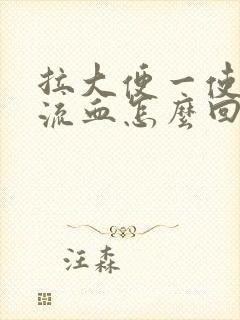 拉大便一使
流血怎麼回
汪森